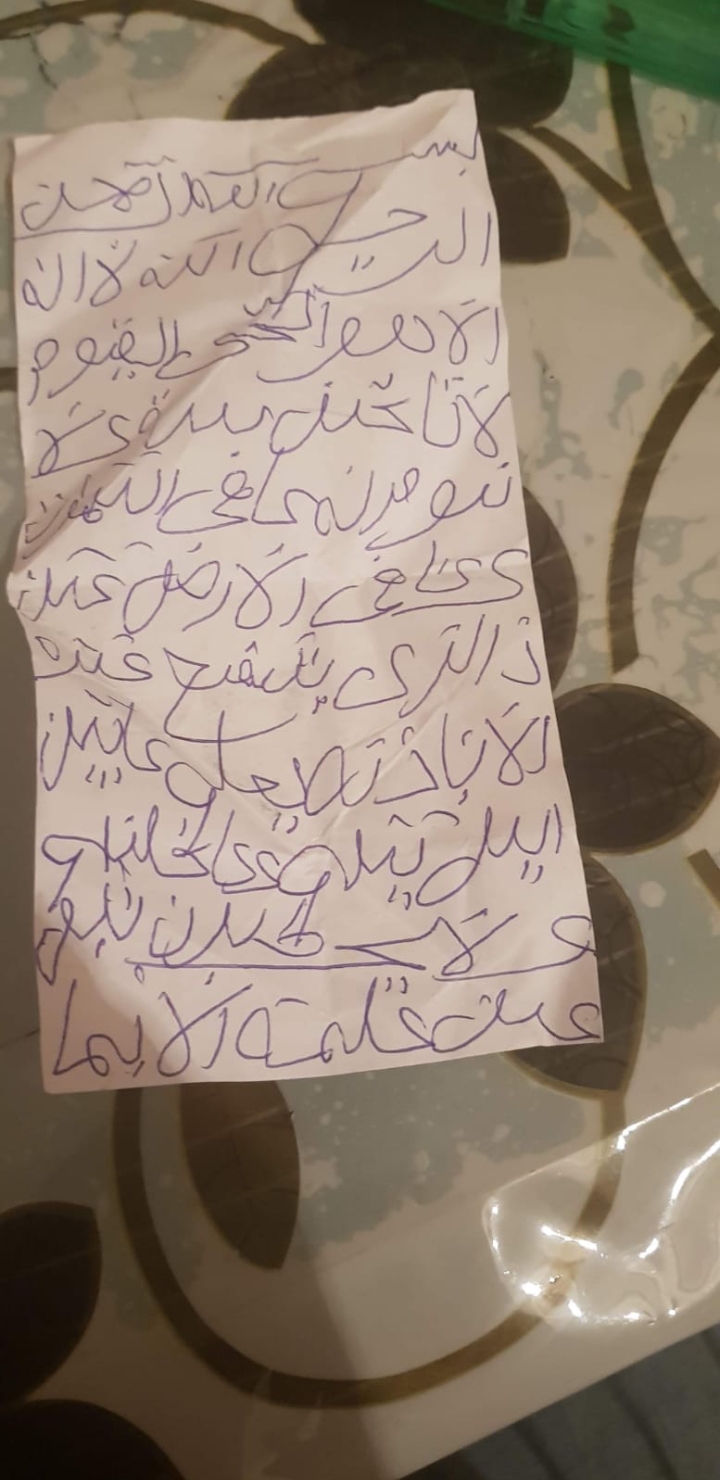 بسم الله الرحمن
الرحيم الله لا اله
الا هو الحي القيوم
لا تا خذه سنة ولا
نوم له ما في السموت
وما في الارض من
ذا الذي يشفع عنده
الا باذنه يعلم ما بين
ايديهم وما خلفهم
ولا يحيطون بشي
من علمه الا بما